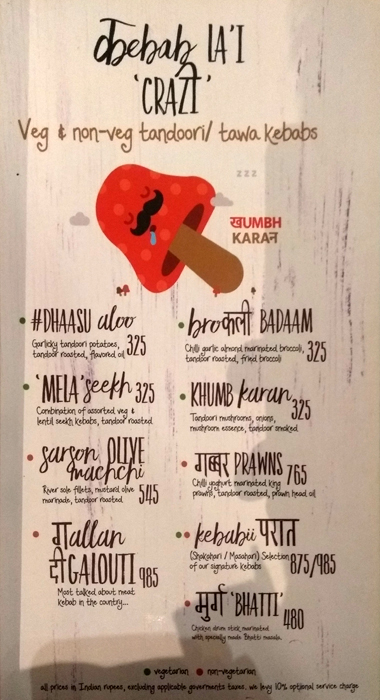 कebab LA'I
'CRAZी'
Veg & non-veg tandoori/ tawa kebabs
z z z
खUMBH
KARAन
#DHAASU aloo
Garlicky tandoori potatoes,
tandoor roasted, flavored oil 325
'MELA' seekh 325
Combination of assorted veg &
lentil seekh kebabs, tandoor roasted
sarson OLIVE
machchi
River sole fillets, mustard olive
marinade, tandoor roasted 545
गallan
दी GALOUTI 985
Most talked about meat
kebab in the country...
broकली BADAAM
Chilli garlic almond marinated broccoli,
tandoor roasted, fried broccoli 325
KHUMB karan 325
Tandoori mushrooms, onions,
mushroom essence, tandoor smoked
गब्बर PRAWNS 765
Chilli yoghurt marinated king
prawns, tandoor roasted, prawn head oil
kebabii परात
(Shakahari / Masahari) Selection
of our signature kebabs 875/985
मुर्ग 'BHATTI' 480
Chicken drum stick marinated
with specially made Bhatti masala
vegetarian non-vegetarian
all prices in Indian rupees, excluding applicable goverments taxes. we levy 10% optional service charge